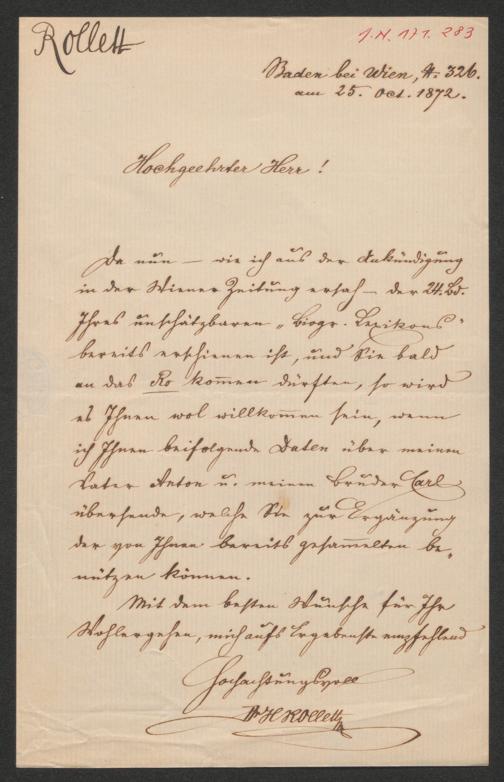 Rollett
J.N. 171.283
Baden bei Wien, N. 326.
am 25. Oct. 1872.
Hochgeehrter Herr!
Da nun – wie ich aus der Ankündigung
in der Wiener Zeitung ersah – der 24. Bd.
Ihres unschätzbaren „Biogr. Lexikons"
bereits erschienen ist, und Sie bald
an das Ro kom̄en dürften, so wird
es Ihnen wol willkom̄en sein, wenn
ich Ihnen beifolgende Daten über meinen
Vater Anton u. meinen Bruder Carl
übersende, welche Sie zur Ergänzung
der von Ihnen bereits gesam̄elten be-
nützen können.
Mit dem besten Wunsche für Ihr
Wohlergehen, mich aufs Ergebenste empfehlend
Hochachtungsvoll
Dr HRollett